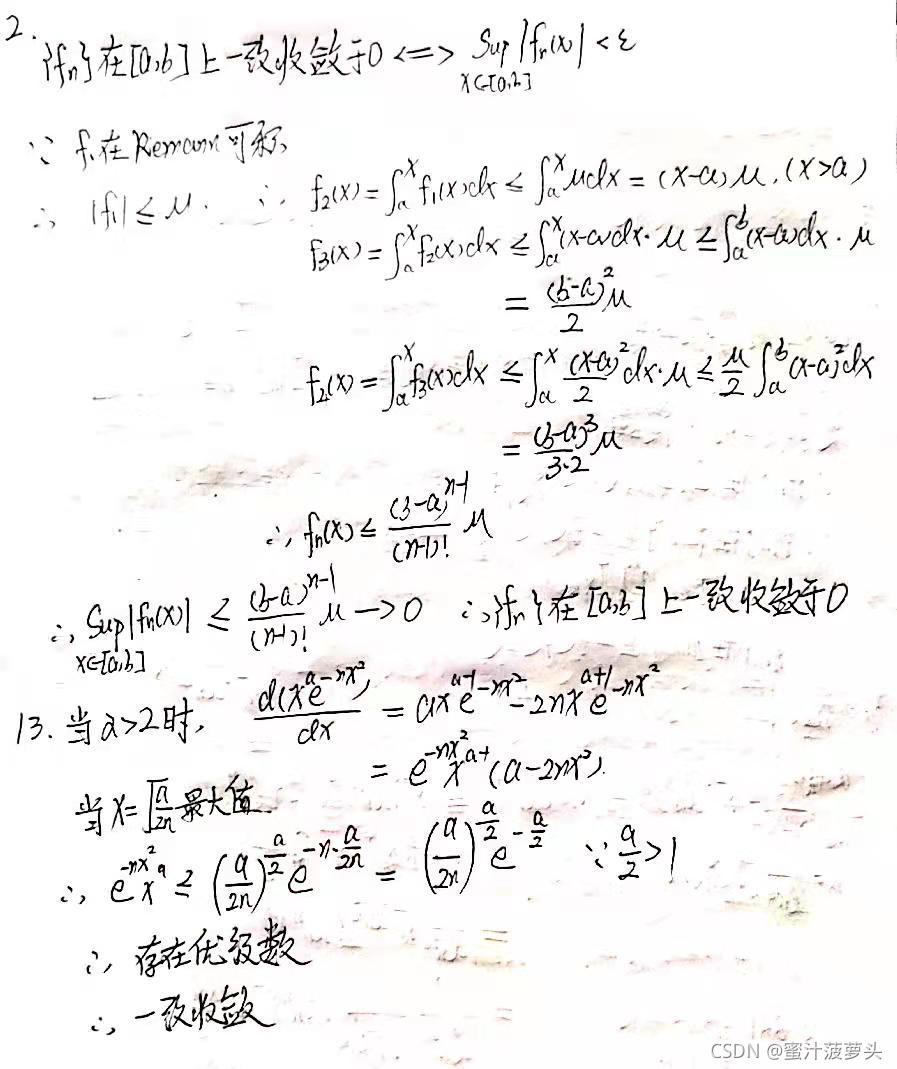 2. {fₙ}在[a,b]上一致收敛于0 <=> Sup_{x∈[a,b]} |fₙ(x)| < ε
∵ f₁在Riemann可积
∴ |f₁| ≤ M. ∴ f₂(x) = ∫ₐˣ f₁(x)dx ≤ ∫ₐˣ Mdx = (x-a)M, (x>a)
f₃(x) = ∫ₐˣ f₂(x)dx ≤ ∫ₐˣ (x-a)dx·M ≤ ∫ₐᵇ (x-a)dx·M
= (b-a)²/2 M
f₂(x) = ∫ₐˣ f₃(x)dx ≤ ∫ₐˣ (x-a)²/2 dx·M ≤ M/2 ∫ₐᵇ (x-a)²dx
= (b-a)³/3·2 M
∴ fₙ(x) ≤ (b-a)ⁿ⁻¹/(n-1)! M
∴ Sup_{x∈[a,b]} |fₙ(x)| ≤ (b-a)ⁿ⁻¹/(n-1)! M → 0 ∴ {fₙ}在[a,b]上一致收敛于0
13. 当a>2时, d(x^a e^{-nx²})/dx = ax^{a-1}e^{-nx²} - 2nx^{a+1}e^{-nx²}
= e^{-nx²}x^{a-1}(a-2nx²).
当x=√(a/2n) 最大值
∴ e^{-nx²}x^a ≤ (a/2n)^{a/2} e^{-n·a/2n} = (a/2n)^{a/2} e^{-a/2} ∵ a/2 > 1
∴ 存在优级数
∴ 一致收敛
CSDN @蜜汁菠萝头